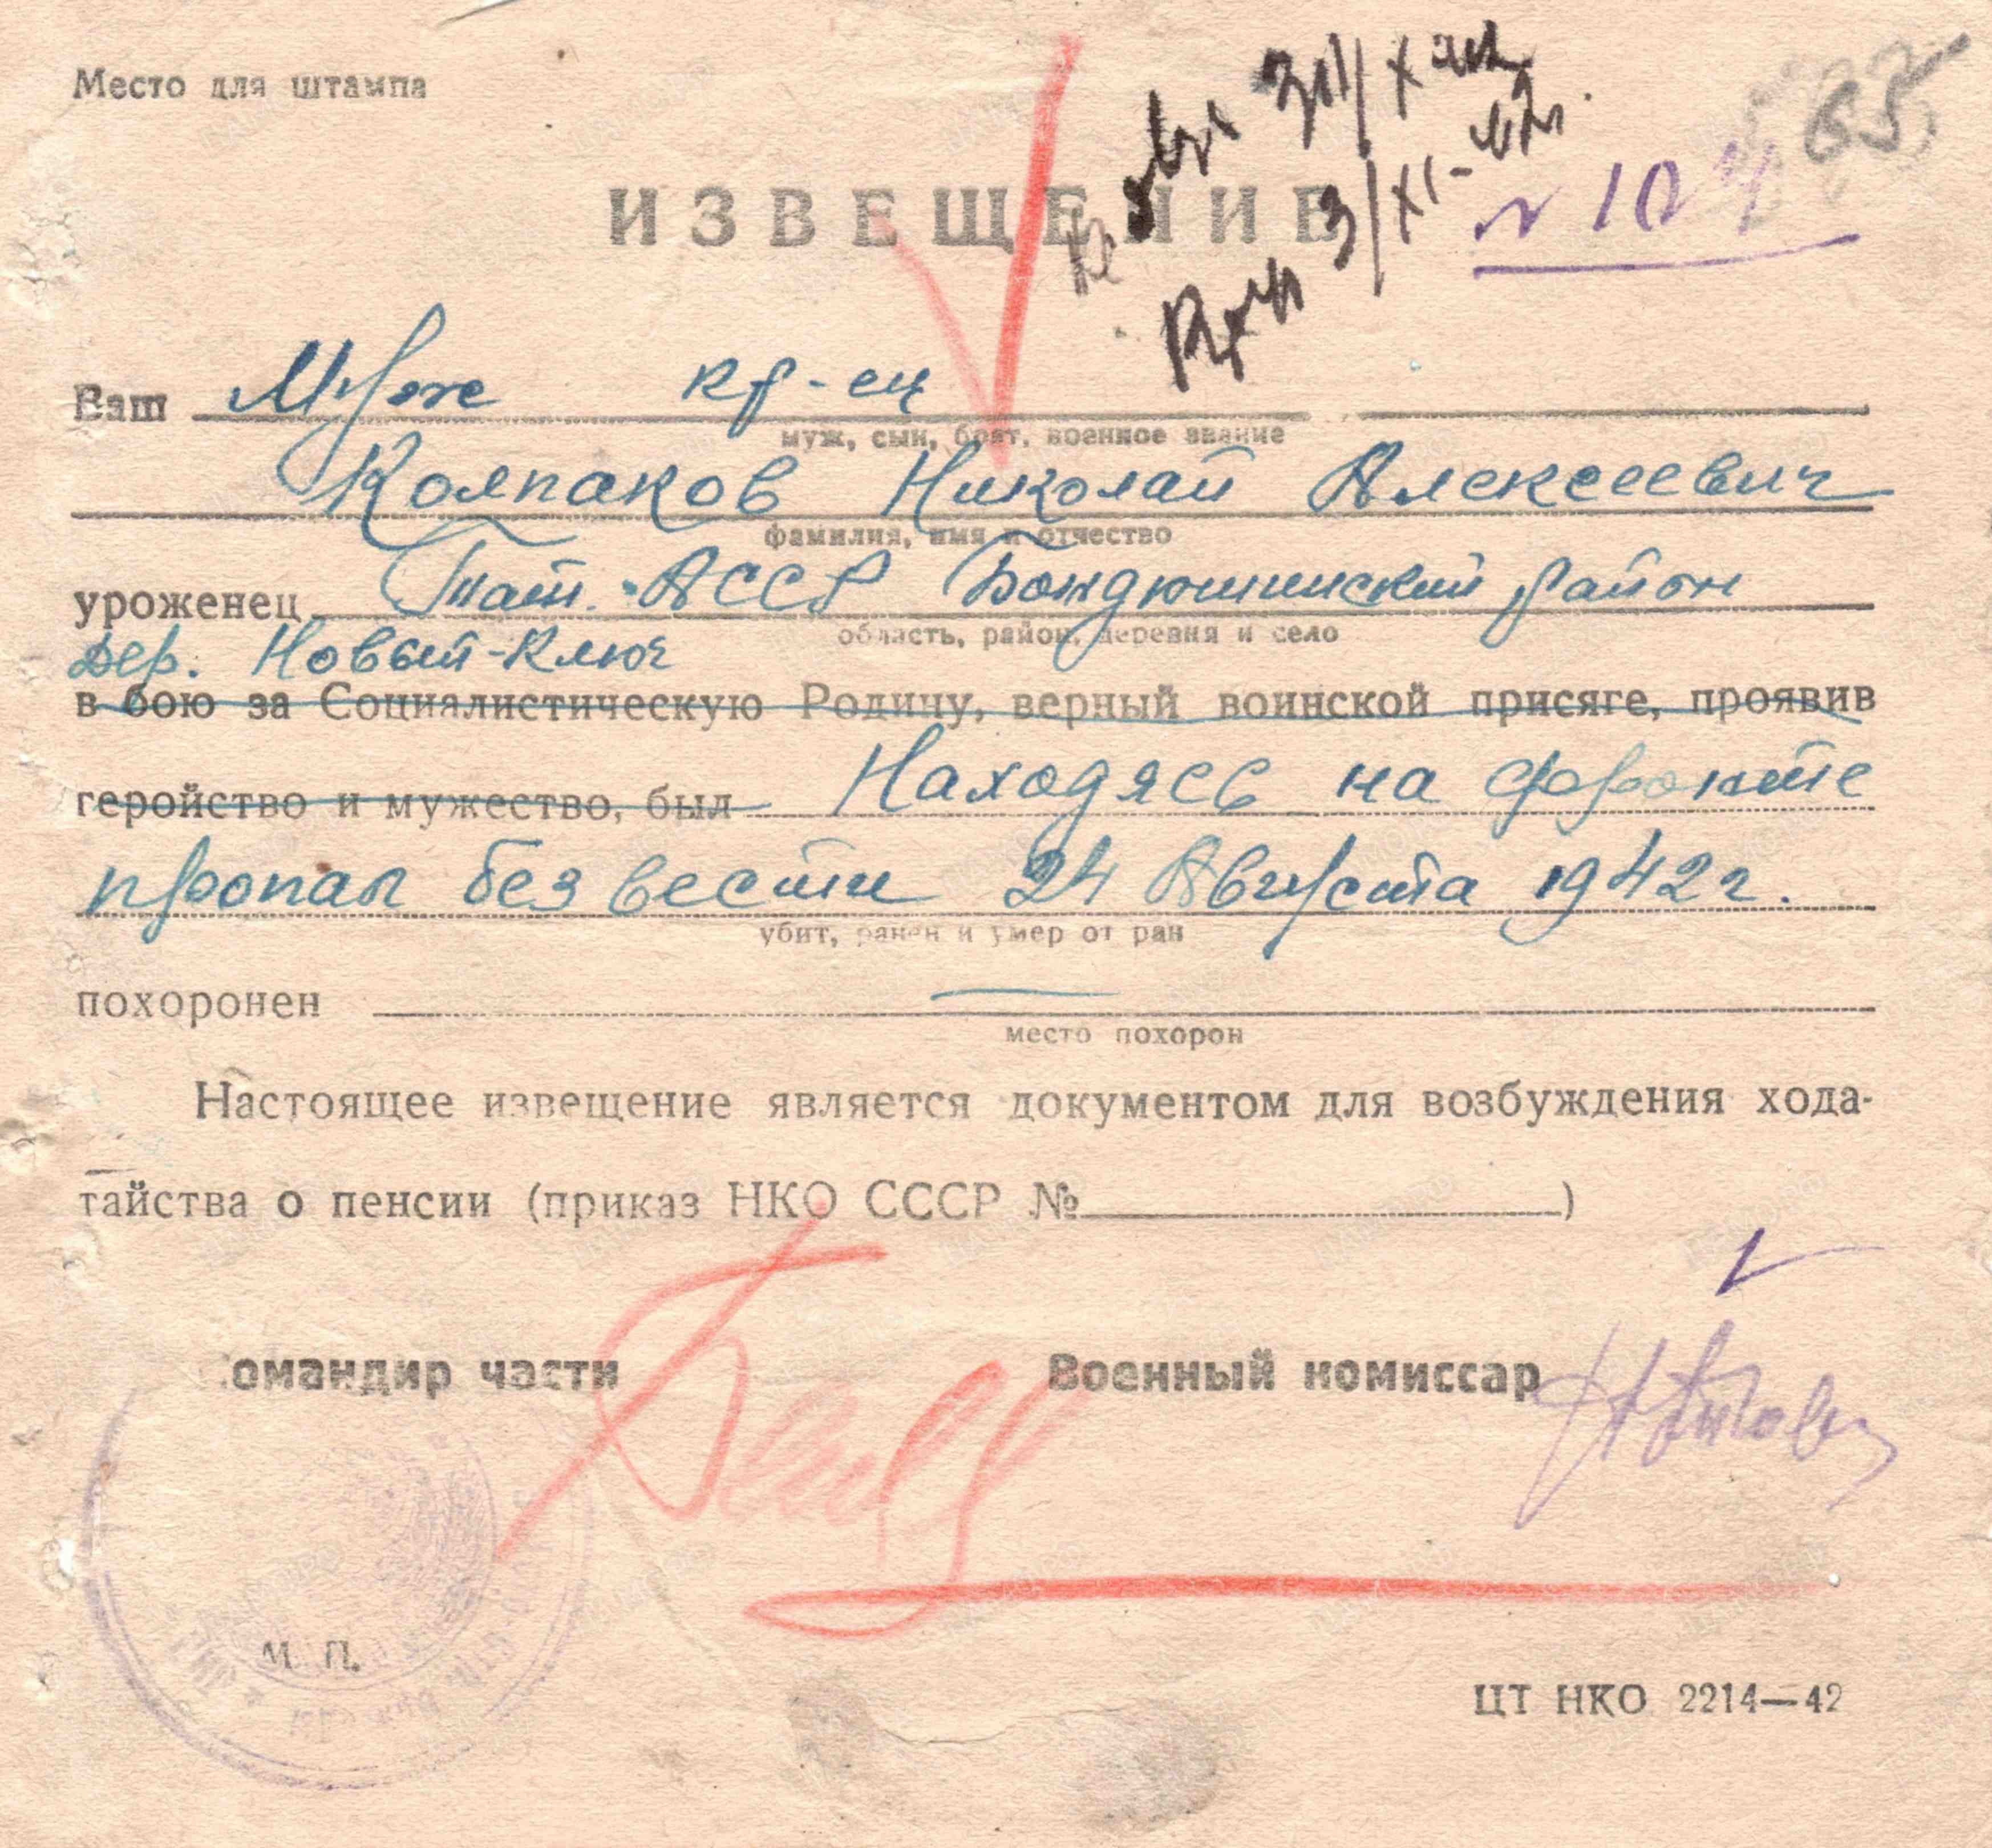 Место для штампа
65
ИЗВЕЩЕНИЕ
3/XI-42
N 104
Ваш Муж кр-ец
муж, сын, брат, военное звание
Колпаков Николай Алексеевич
фамилия, имя и отчество
уроженец Тат. АССР Бондюжинский район
область, район, деревня и село
дер. Новый-Ключ
в бою за Социалистическую Родину, верный воинской присяге, проявив
геройство и мужество, был Находясь на фронте
пропал без вести 24 Августа 1942 г.
убит, ранен и умер от ран
похоронен —
место похорон
Настоящее извещение является документом для возбуждения хода-
тайства о пенсии (приказ НКО СССР №)
омандир части Военный комиссар
М. П.
ЦТ НКО 2214—42